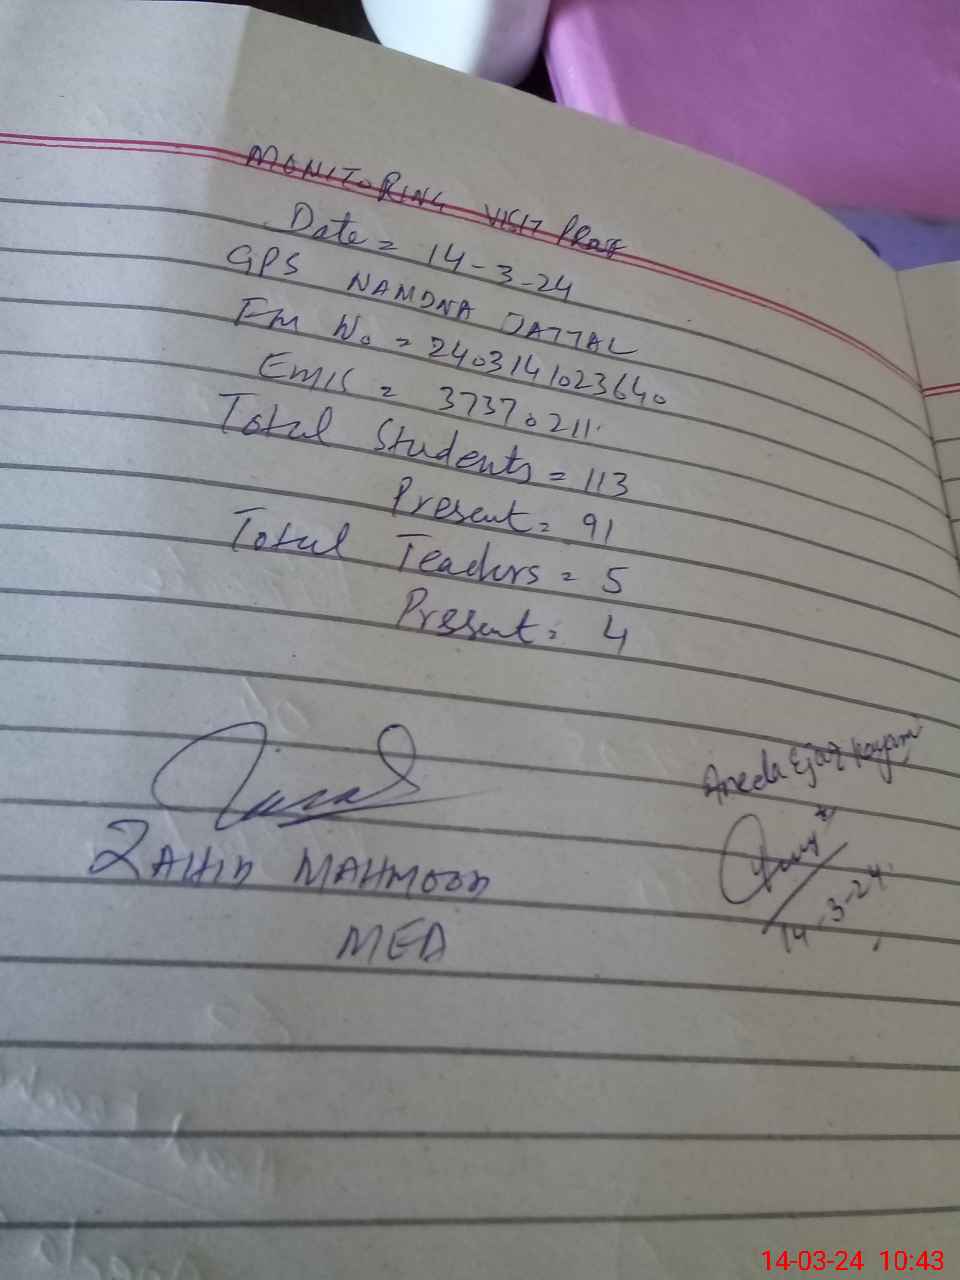 MONITORING VISIT Proof
Date = 14-3-24
GPS NAMDNA DATTAL
Fm No = 2403141023640
EMIS = 37370211
Total Students = 113
Present = 91
Total Teachers = 5
Present = 4
ZAHID MAHMOOD
MEA
14-3-24
14-03-24 10:43